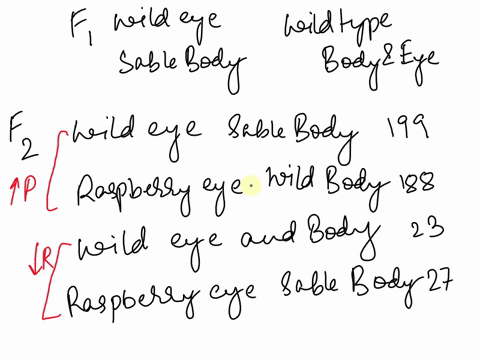 F1 wild eye wild type
Sable Body Body & Eye
F2 wild eye Sable Body 199
↑P Raspberry eye wild Body 188
↓R wild eye and Body 23
Raspberry eye Sable Body 27